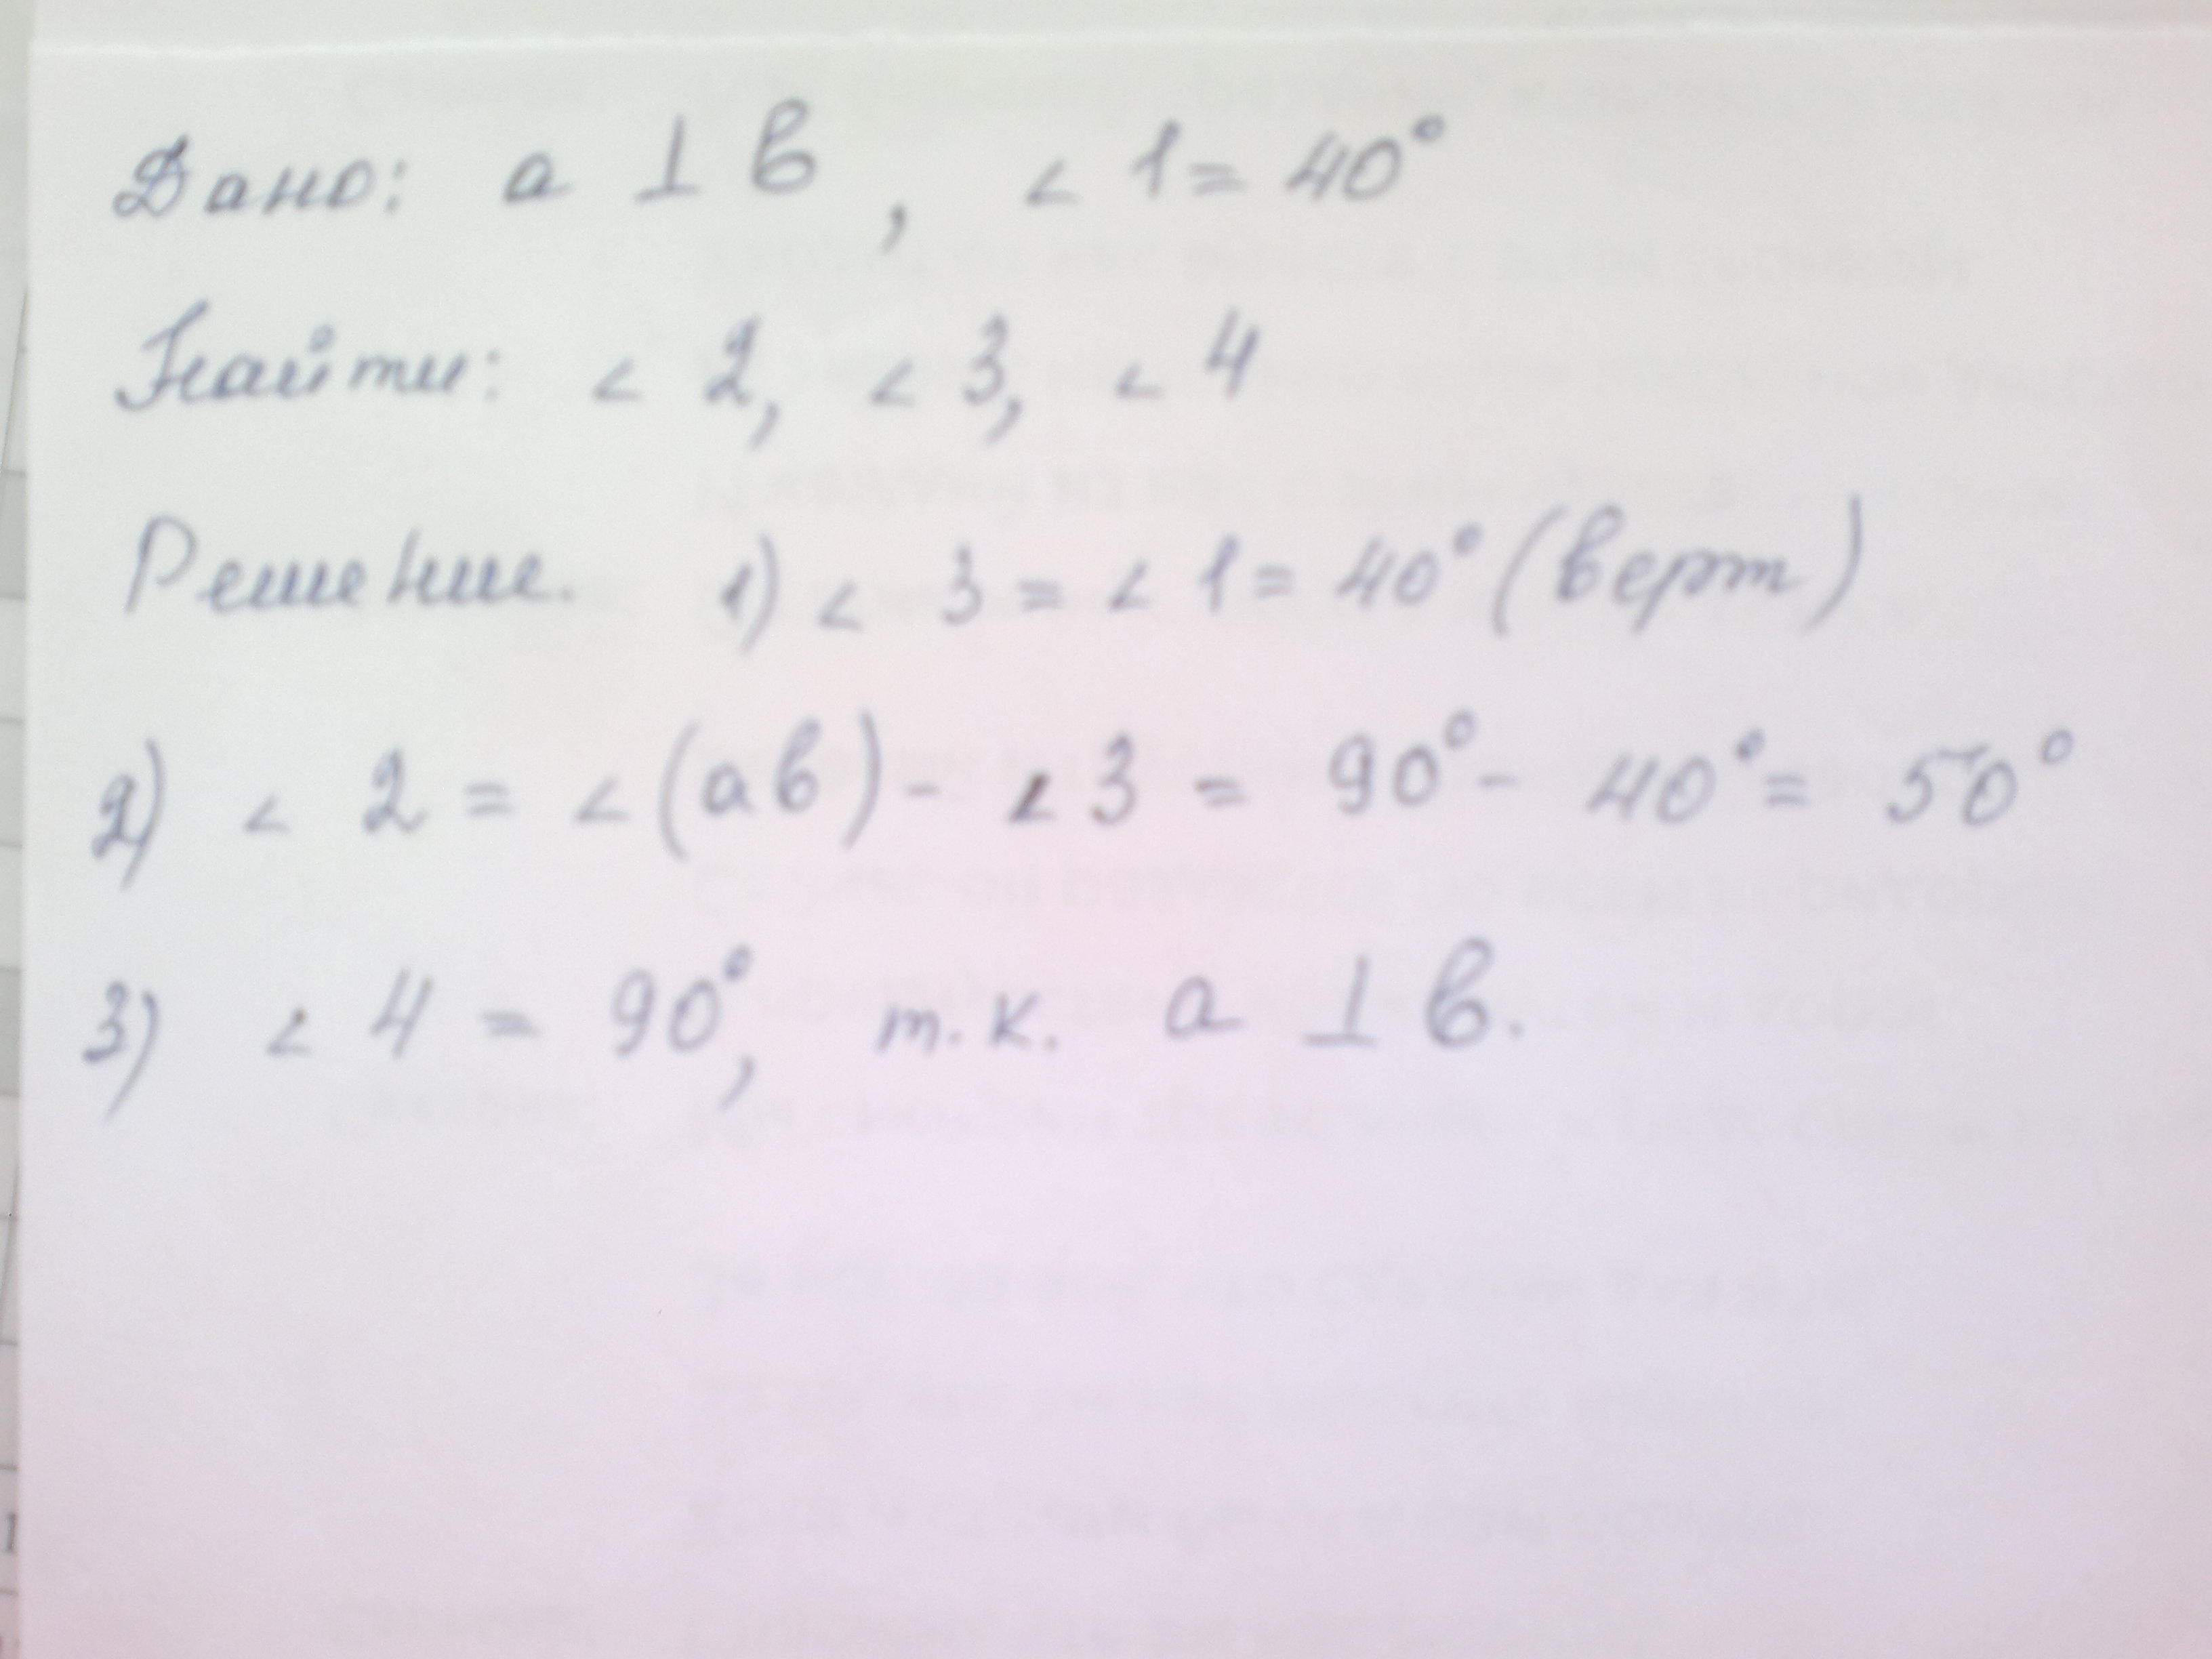 Дано: а ⊥ в, ∠ 1 = 40°
Найти: ∠ 2, ∠ 3, ∠ 4
Решение. 1) ∠ 3 = ∠ 1 = 40° (верт)
2) ∠ 2 = ∠(ав) - ∠3 = 90° - 40° = 50°
3) ∠ 4 = 90°, т.к. а ⊥ в.